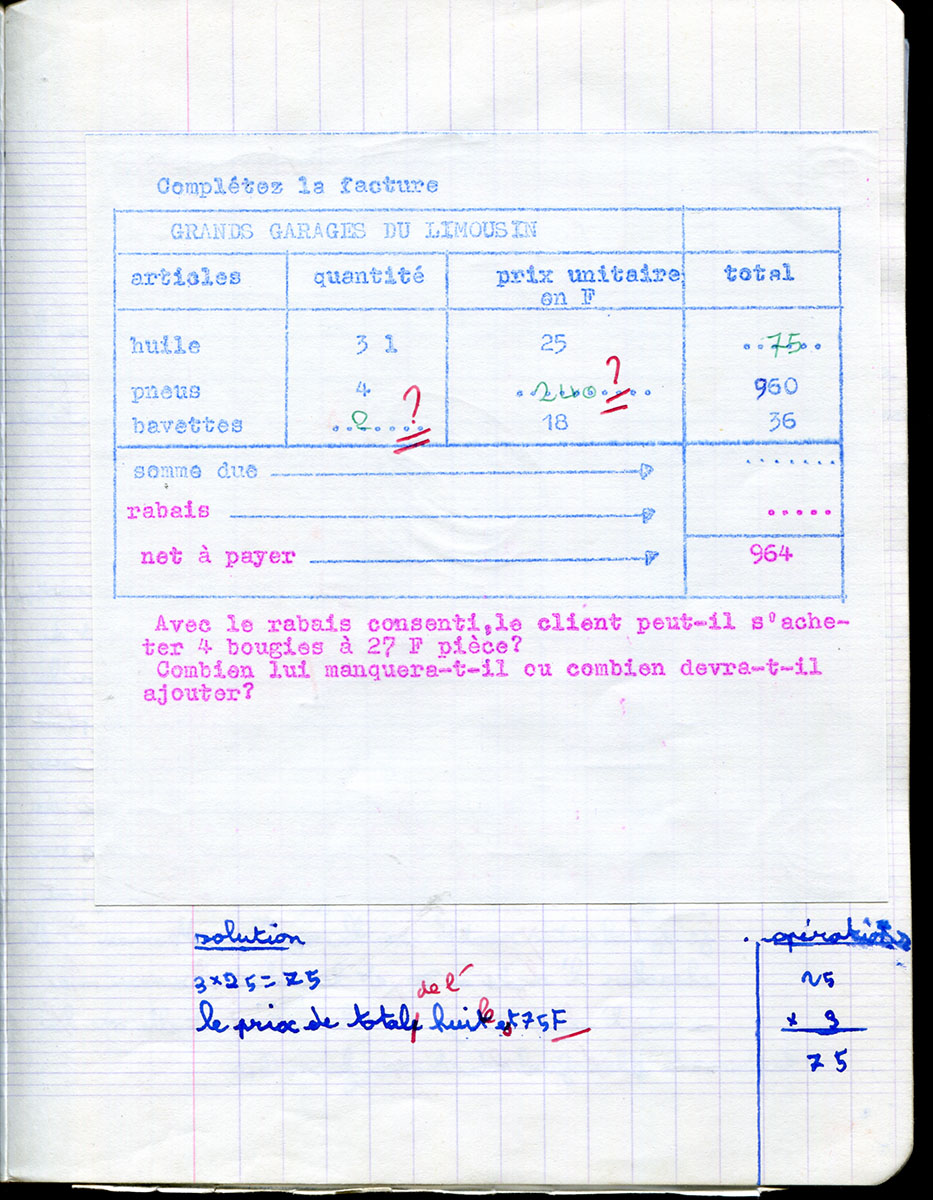 Complétez la facture
GRANDS GARAGES DU LIMOUSIN
articles quantité prix unitaire en F total
huile 3 l 25 75
pneus 4 240 ? 960
bavettes 2 ? 18 36
somme due .......
rabais .....
net à payer 964
Avec le rabais consenti, le client peut-il s'ache-
ter 4 bougies à 27 F pièce?
Combien lui manquera-t-il ou combien devra-t-il
ajouter?
solution
opérations
3×25=75
25
de l'
le prix de total huile est 75F
× 3
75